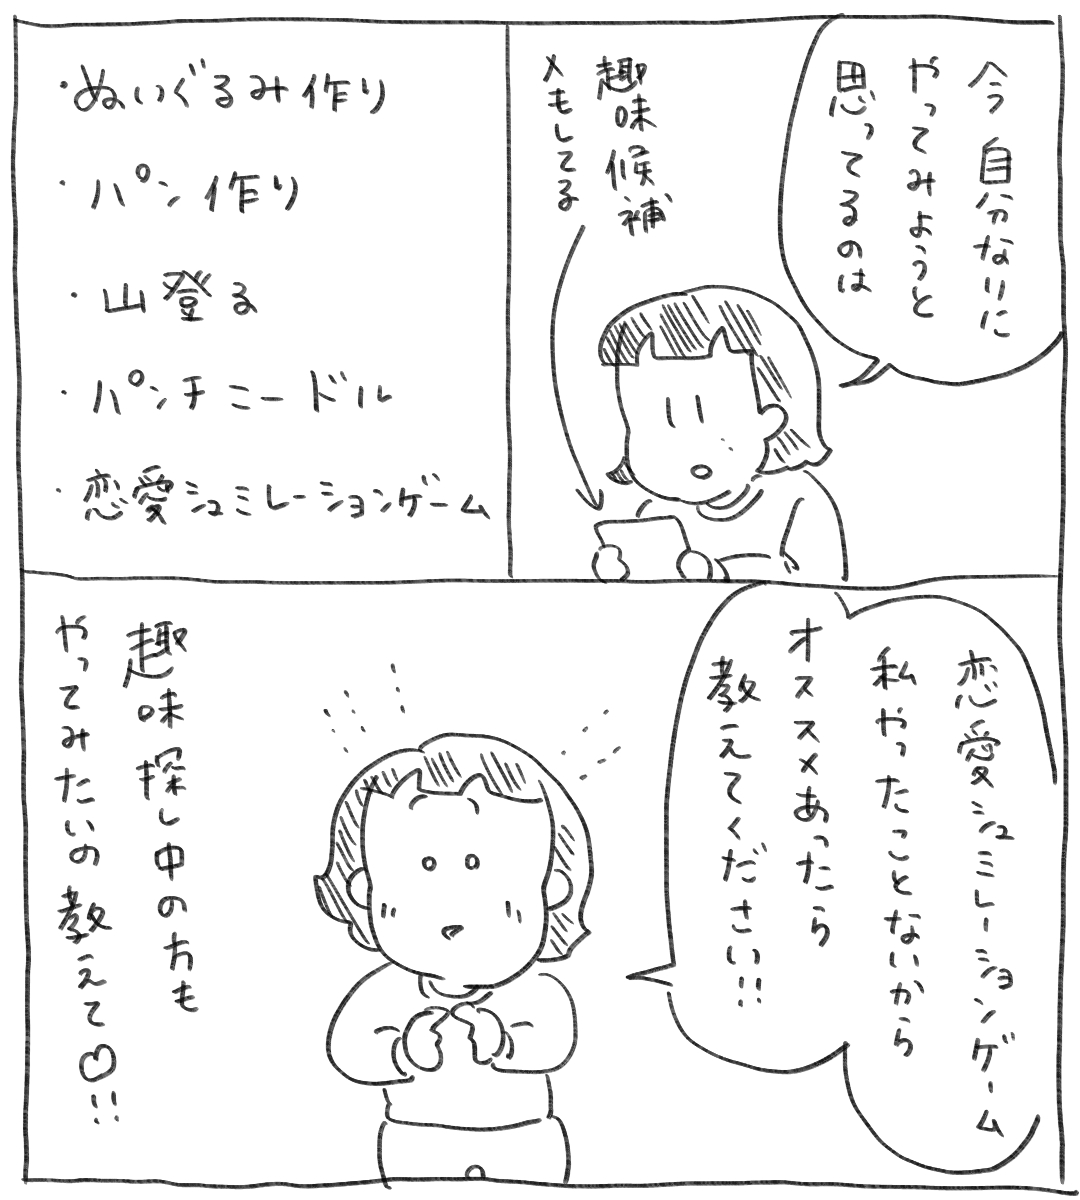 今自分なりに
やってみようと
思ってるのは
趣味候補
メもしてる
・ぬいぐるみ作り
・パン作り
・山登る
・パンチニードル
・恋愛シュミレーションゲーム
恋愛シュミレーションゲーム
私やったことないから
オススメあったら
教えてください!!
趣味探し中の方も
やってみたいの教えて♡!!